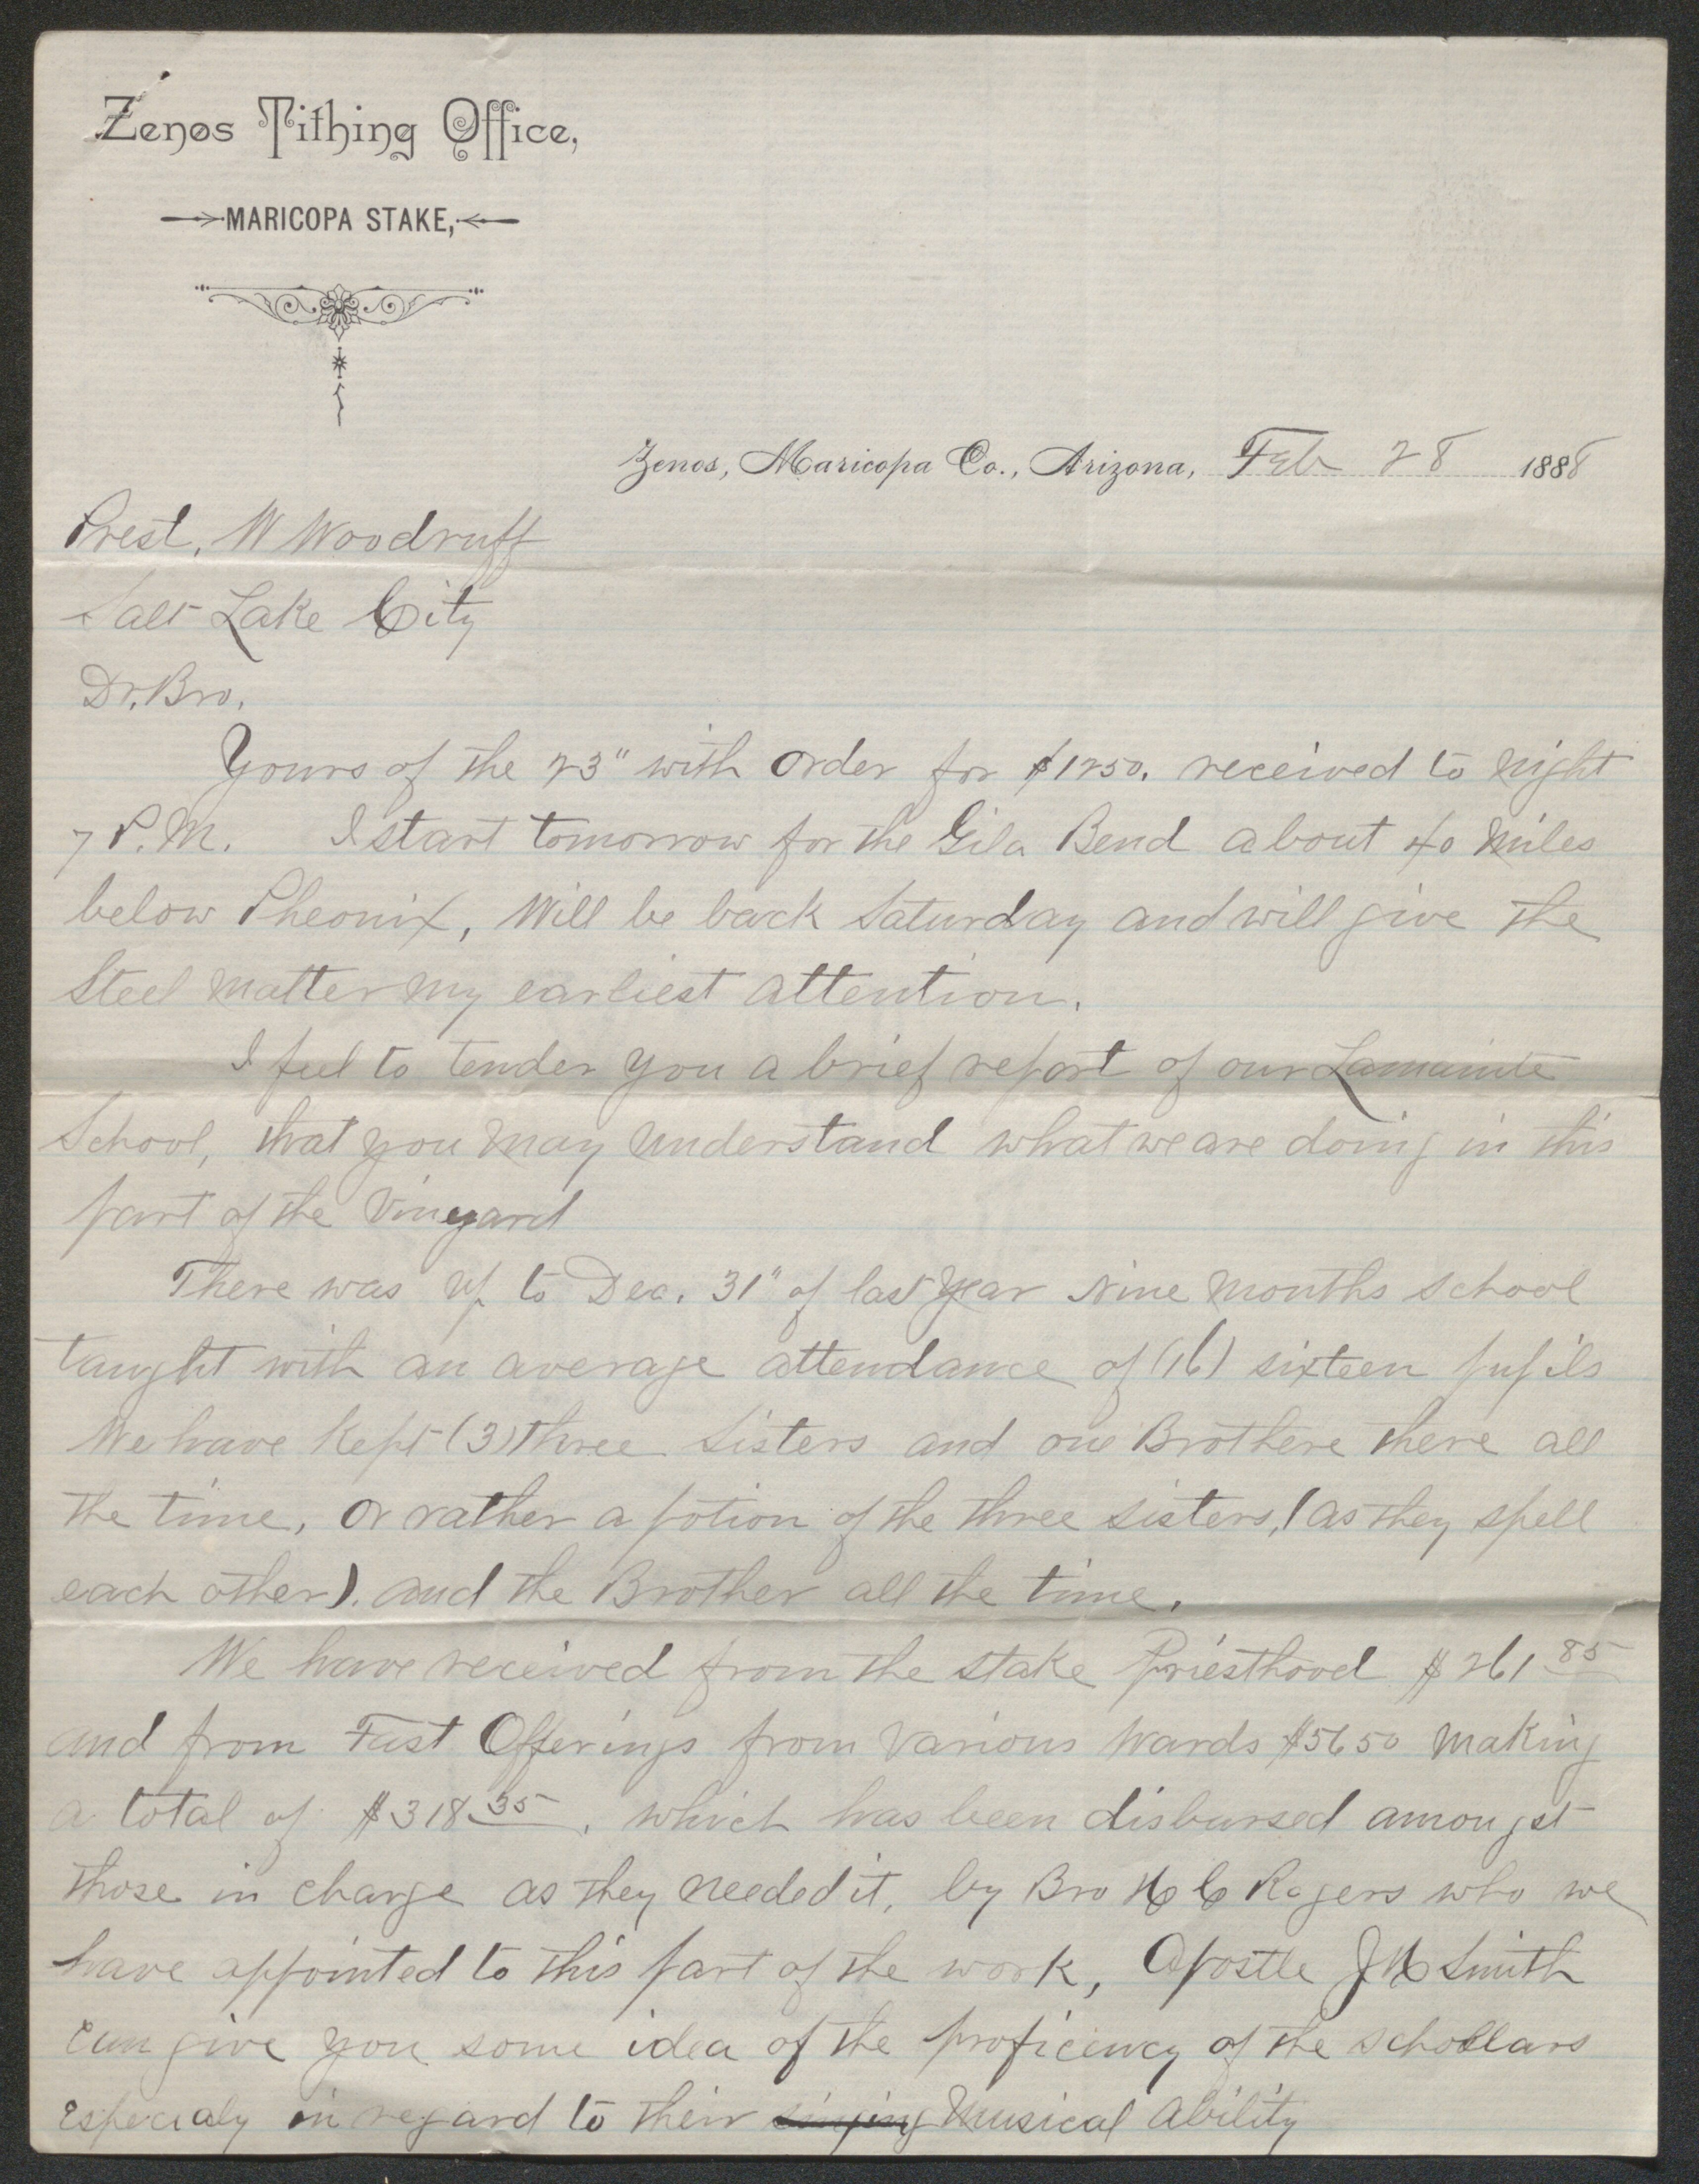 Zenos Tithing Office,
MARICOPA STAKE,
Zenos, Maricopa Co., Arizona, Feb 28 1888
Prest. W Woodruff
Salt Lake City
Dr. Bro.
Yours of the 23" with order for $1250. received to night
7 P.M. I start tomorrow for the Gila Bend about 40 miles
below Pheonix, Will be back Saturday and will give the
Steel matter my earliest attention.
I feel to tender you a brief report of our Lamainite
School, that you may understand what we are doing in this
part of the Vineyard
There was up to Dec. 31" of last year Nine months school
taught with an average attendance of (16) sixteen pupils
We have kept (3) three sisters and one Brothere there all
the time, or rather a potion of the three sisters, (as they spell
each other). and the Brother all the time.
We have received from the stake Priesthood $261 85
and from Fast Offerings from various wards $56 50 making
a total of $318 35. which has been disbursed amongst
those in charge as they needed it, by Bro H C Rogers who we
have appointed to this part of the work, Apostle J H Smith
can give you some idea of the proficiency of the schollars
especialy in regard to their singing musical ability